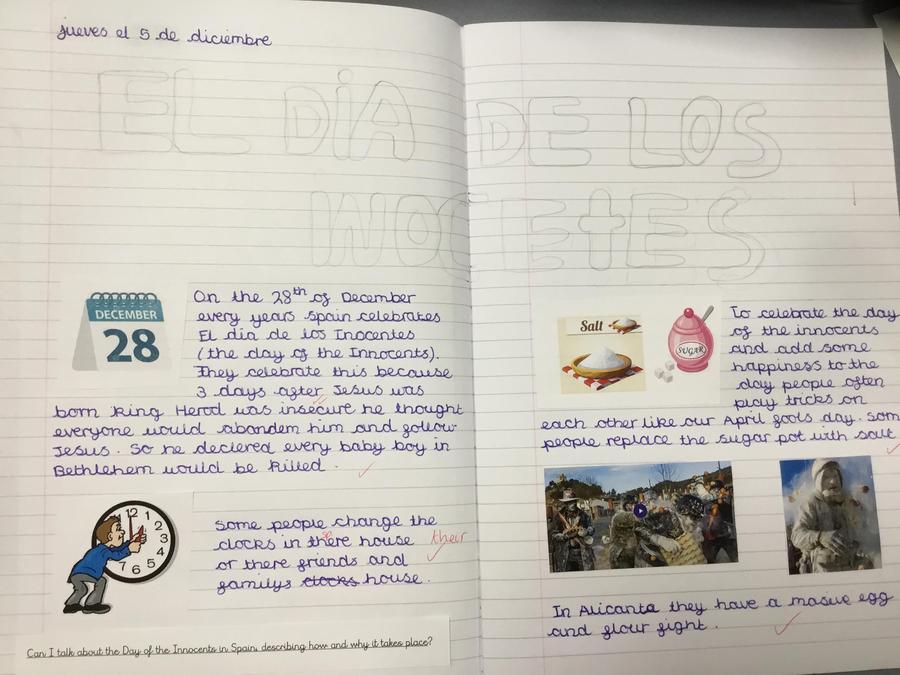 jueves el 5 de diciembre
EL DíA DE LOS
INOCEtES
DECEMBER
28
On the 28th of December
every years Spain celebrates
El día de los Inocentes
(the day of the Innocents).
They celebrate this because
3 days after Jesus was
born King Herod was insecure he thought
everyone would abandem him and follow
Jesus. So he declered every baby boy in
Bethlehem would be killed.
12
1
2
3
4
5
6
7
Some people change the
clocks in there house their
or there friends and
familys clocks house.
Can I talk about the Day of the Innocents in Spain, describing how and why it takes place?
Salt
SUGAR
To celebrate the day
of the innocents
and add some
happiness to the
day people often
play tricks on
each other like our April fools day. Som
people replace the sugar pot with salt
In Alicanta they have a masive egg
and flour fight.